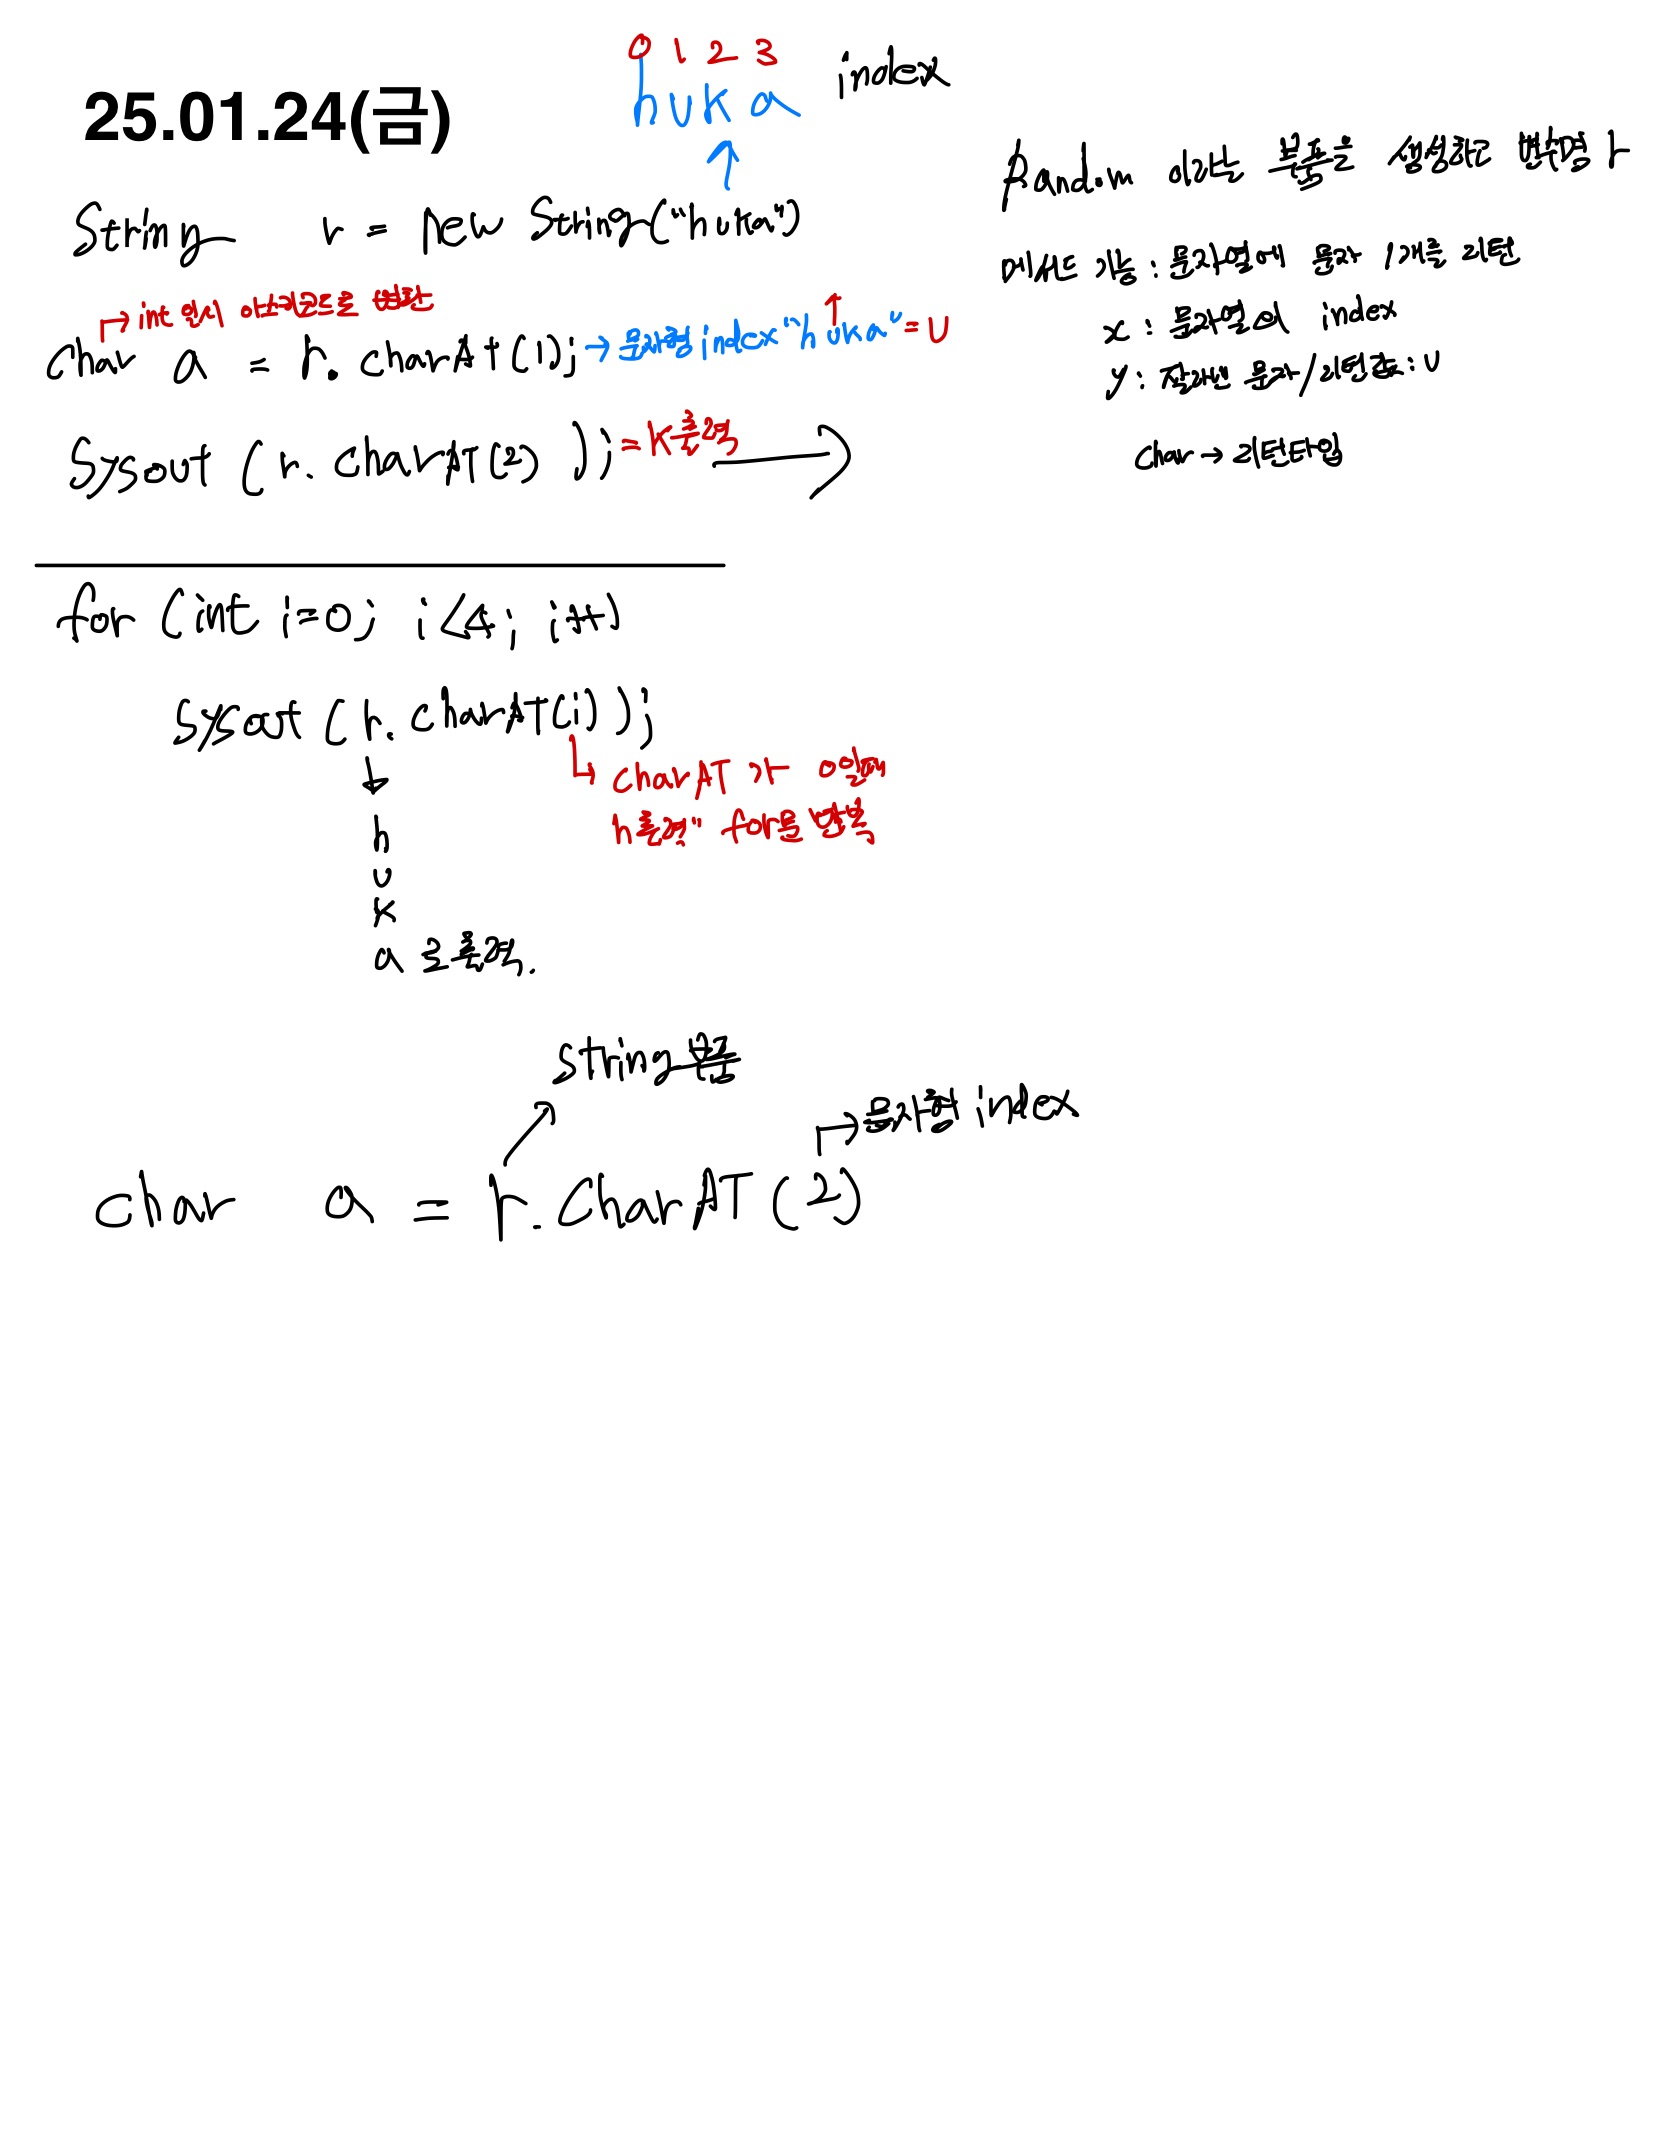 25.01.24(금)
0 1 2 3
huka index
String r = new String("huka")
int 일시 아스키코드로 변환
char a = r.charAt(1); → 문자형 index "huka" = u
Sysout (r.charAT(2)); = K출력
Random 이라는 부품을 생성하고 변수명 r
메서드 기능 : 문자열에 문자 1개를 리턴
x : 문자열의 index
y : 잘라낸 문자/리턴값 : u
char → 리턴타입
for (int i=0; i<4; i++)
Sysout (r.charAT(i));
charAT 가 0일때
h출력" for문 반복
h
u
k
a 로 출력.
string 부품
문자형 index
char a = r.CharAT(2)